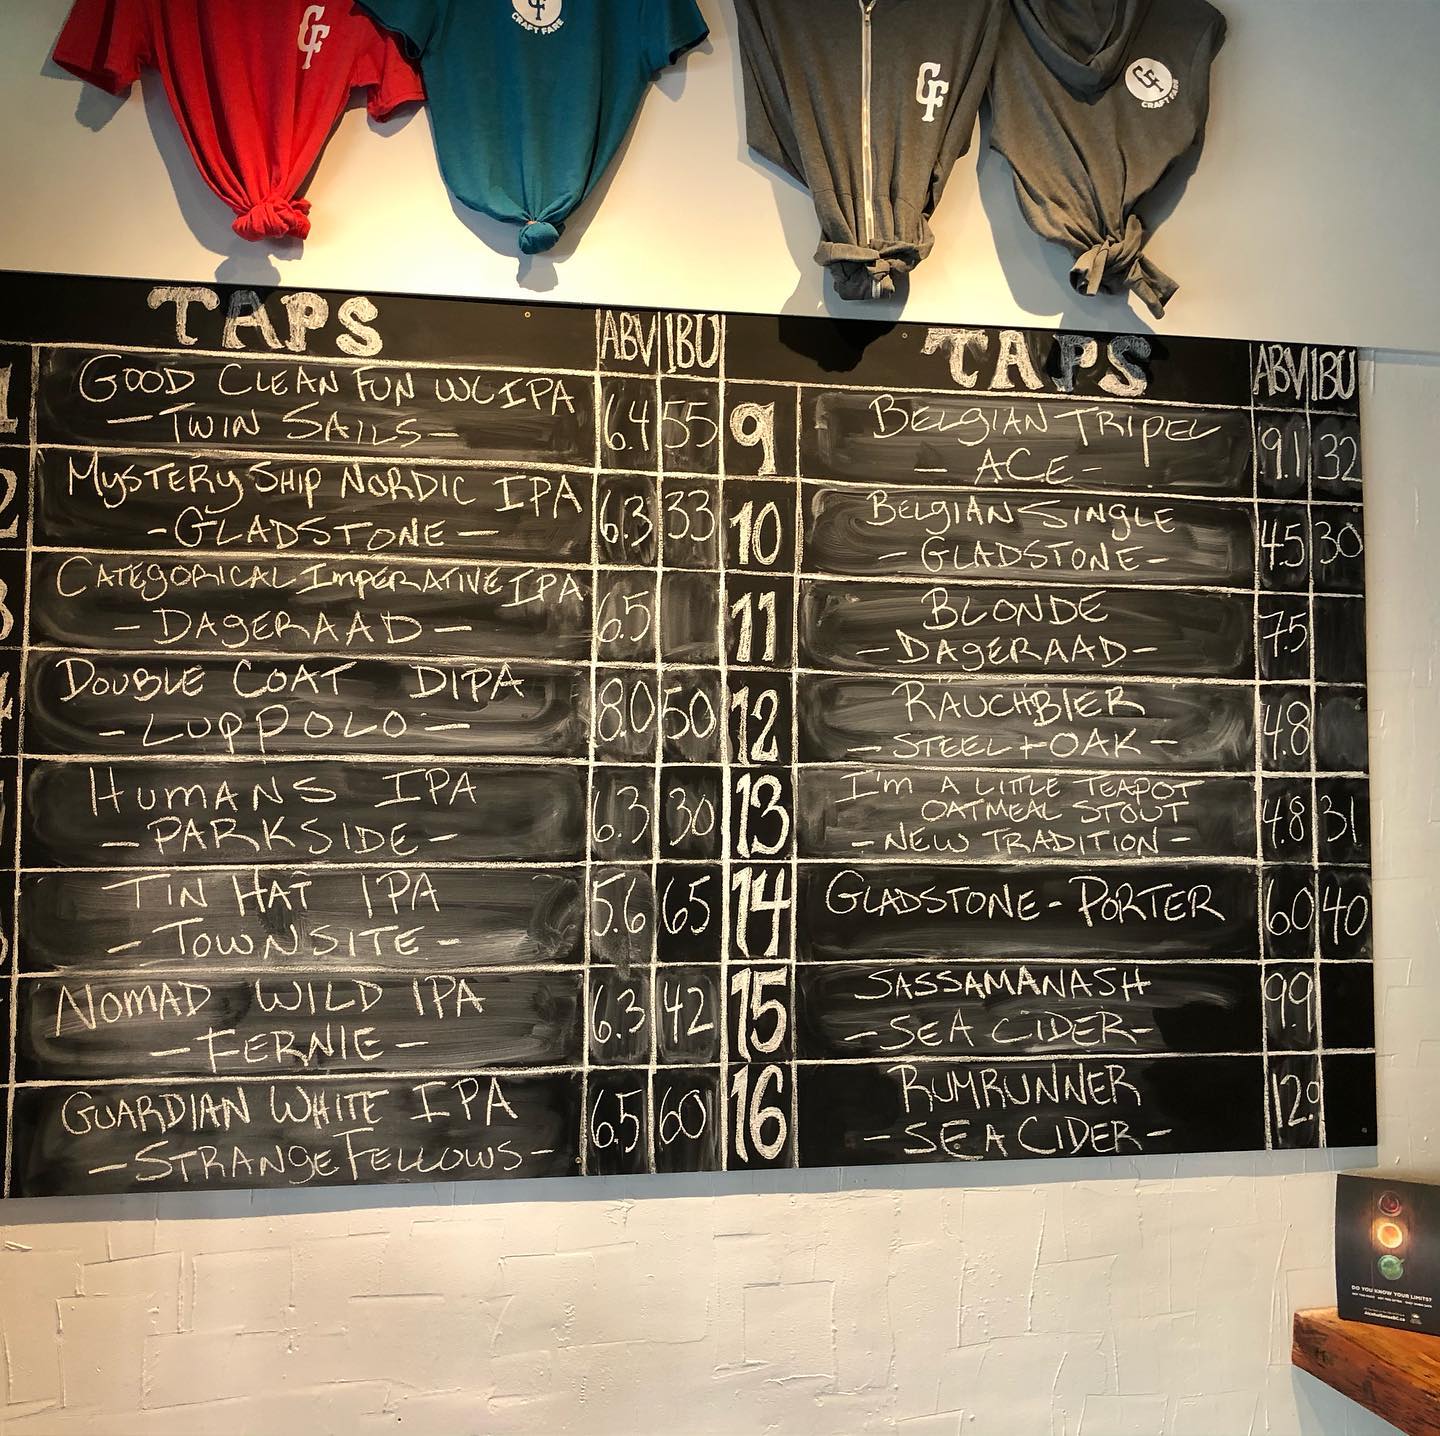 GF
GF
CRAFT FARE
GF
GF
CRAFT FARE
TAPS ABV IBU
1 GOOD CLEAN FUN WC IPA 6.4 55
- TWIN SAILS -
2 MYSTERY SHIP NORDIC IPA 6.3 33
- GLADSTONE -
3 CATEGORICAL IMPERATIVE IPA 6.5
- DAGERAAD -
DOUBLE COAT DIPA 8.0 50
- LUPPOLO -
HUMANS IPA 6.3 30
- PARKSIDE -
TIN HAT IPA 5.6 65
- TOWNSITE -
NOMAD WILD IPA 6.3 42
- FERNIE -
GUARDIAN WHITE IPA 6.5 60
- STRANGE FELLOWS -
TAPS ABV IBU
9 BELGIAN TRIPEL 9.1 32
- ACE -
10 BELGIAN SINGLE 4.5 30
- GLADSTONE -
11 BLONDE 7.5
- DAGERAAD -
12 RAUCHBIER 4.8
- STEEL + OAK -
13 I'M A LITTLE TEAPOT 4.8 31
OATMEAL STOUT
- NEW TRADITION -
14 GLADSTONE - PORTER 6.0 40
15 SASSAMANASH 9.9
- SEA CIDER -
16 RUMRUNNER 12.0
- SEA CIDER -
DO YOU KNOW YOUR LIMITS?